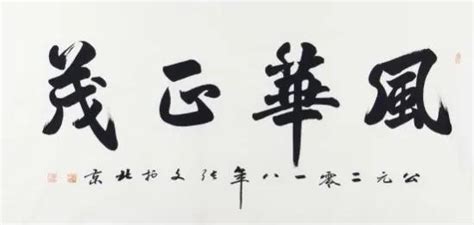 風華正茂
公元二零一八年张文於北京